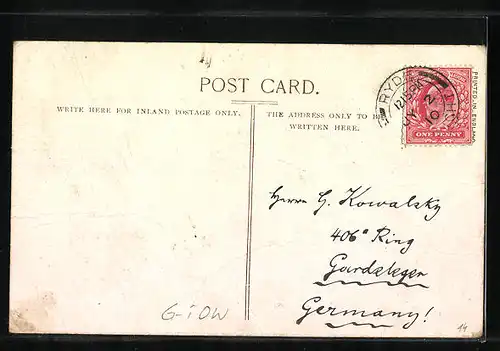 POST CARD.
WRITE HERE FOR INLAND POSTAGE ONLY.
THE ADDRESS ONLY TO BE
WRITTEN HERE.
RYD
ONE PENNY
PRINTED IN ENGLAND
Herrn H. Kowalsky
406a Ring
Gardelegen
Germany!
G-i OW
14